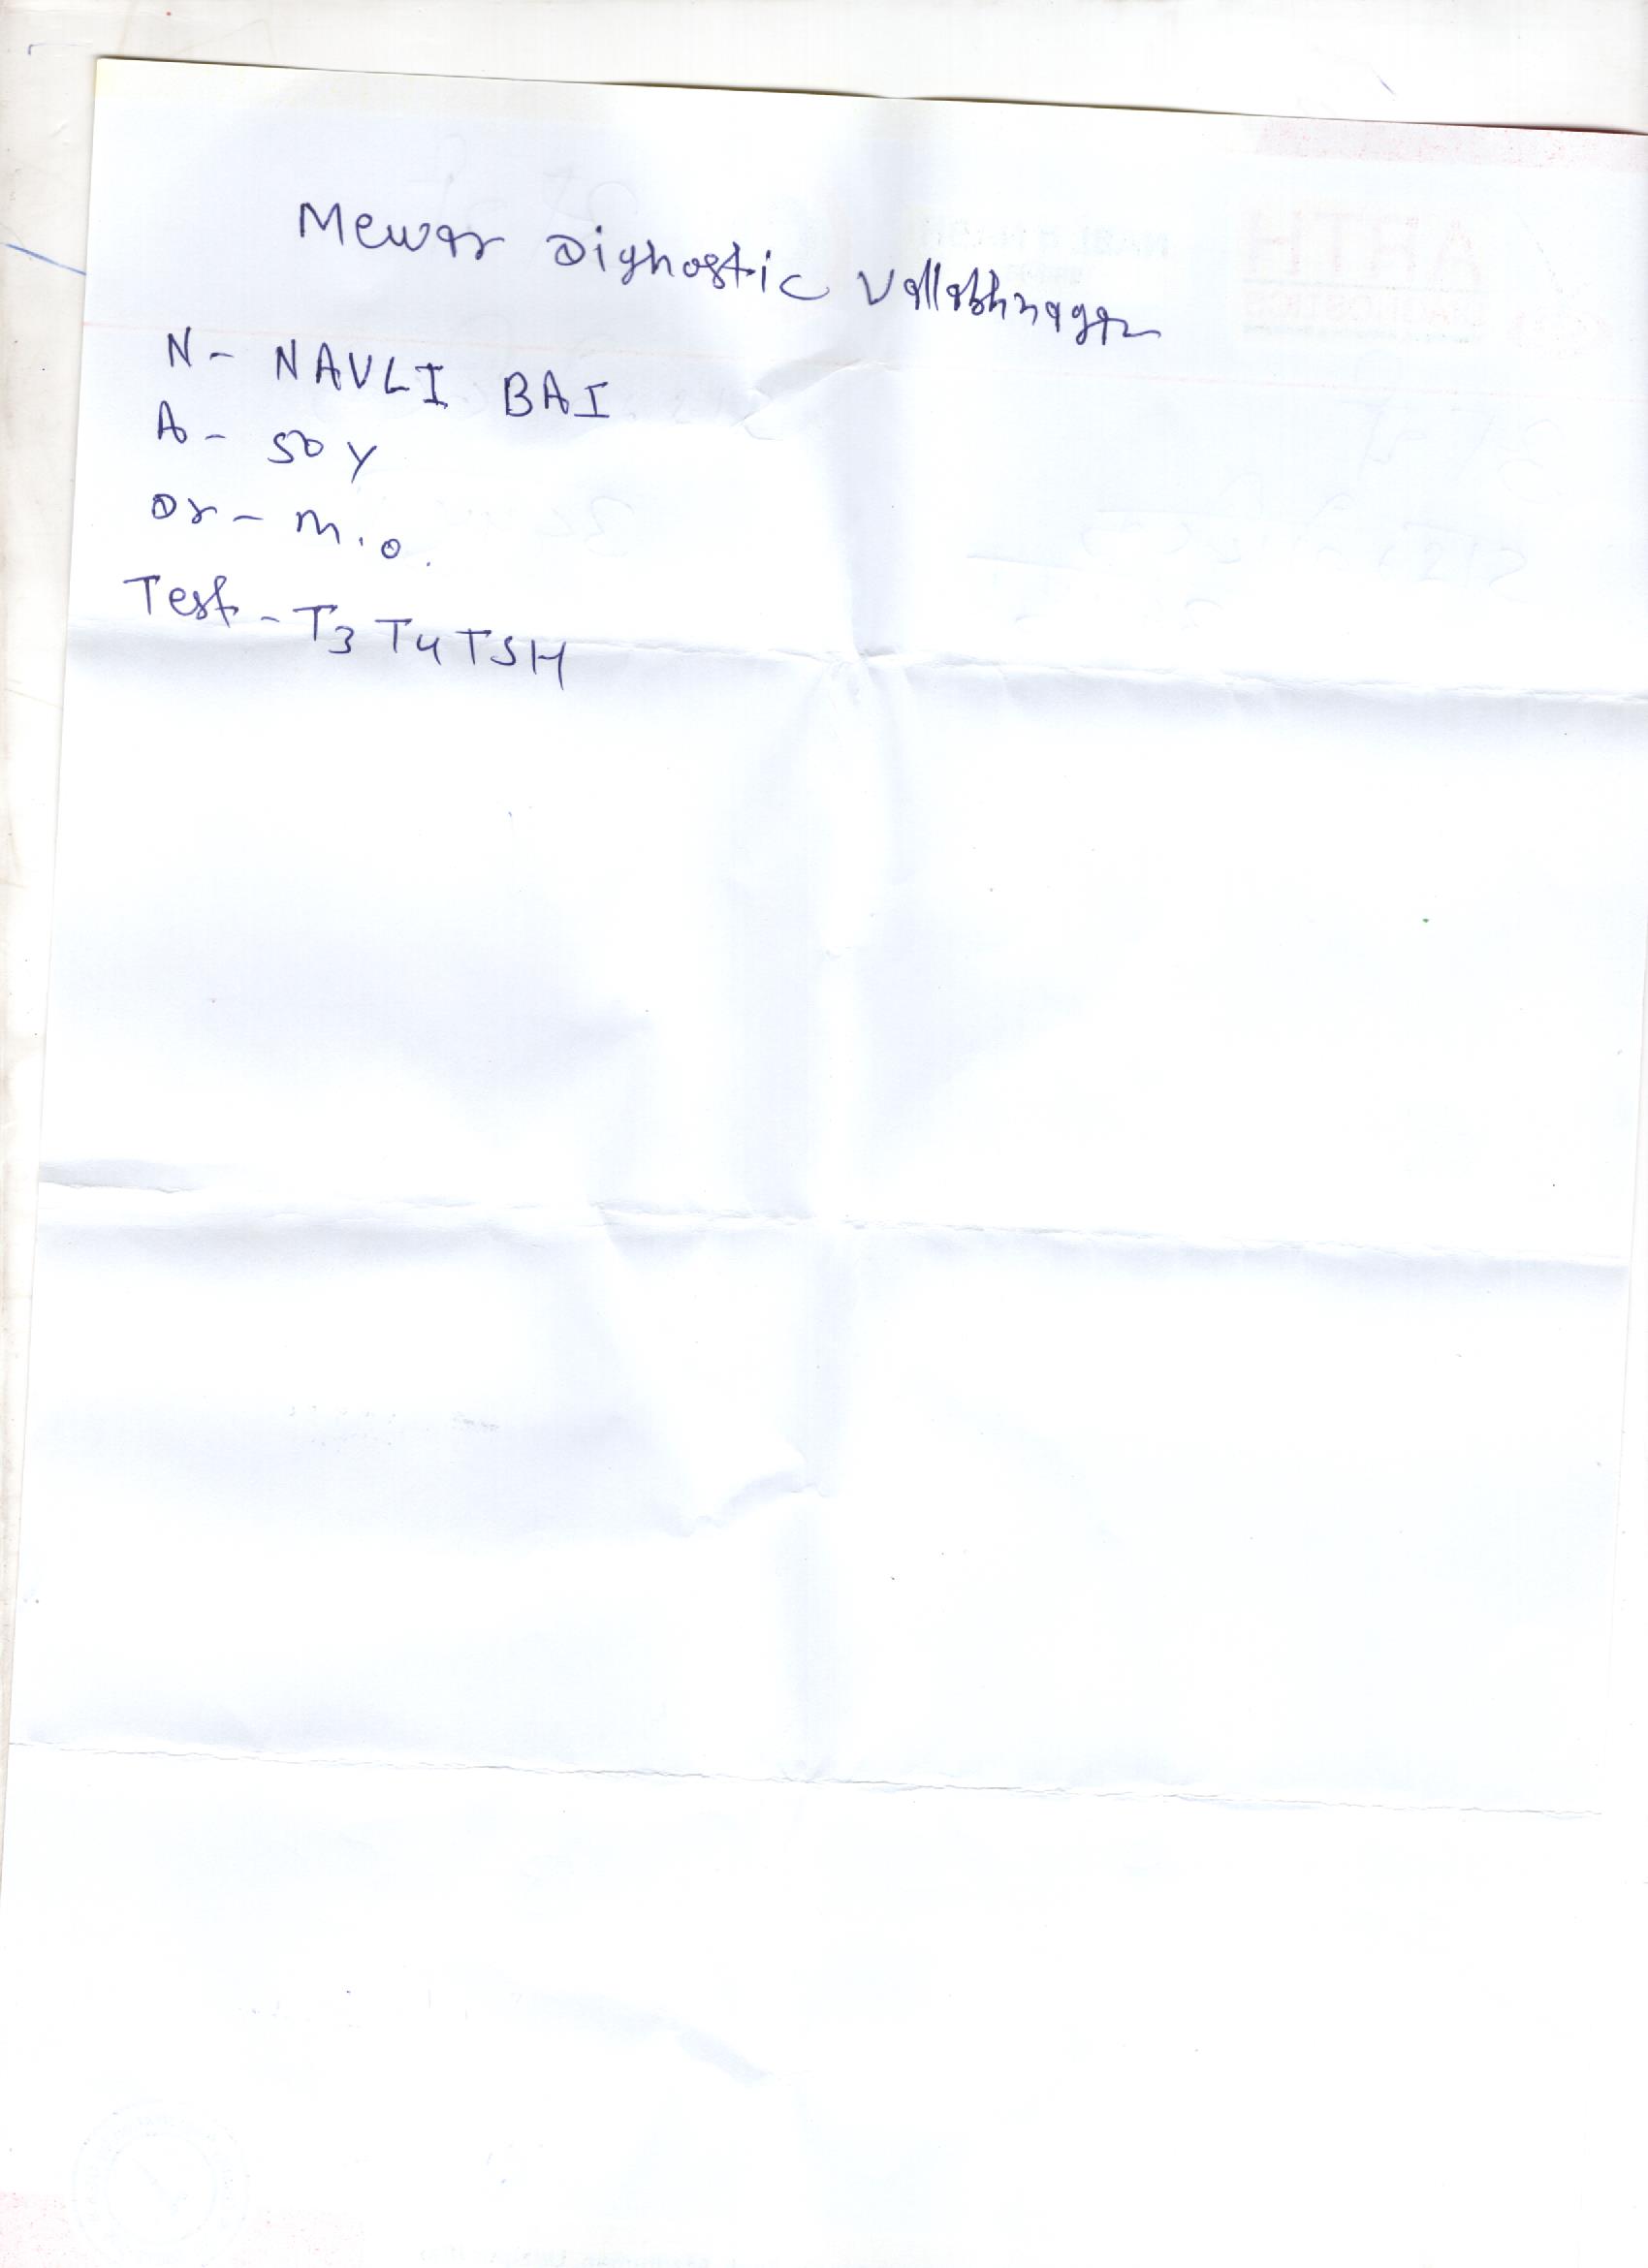 Mewar Dighostic Vallabhnagar
N- NAVLI BAI
A- 50 Y
Dr- M.O.
Test- T3 T4 TSH